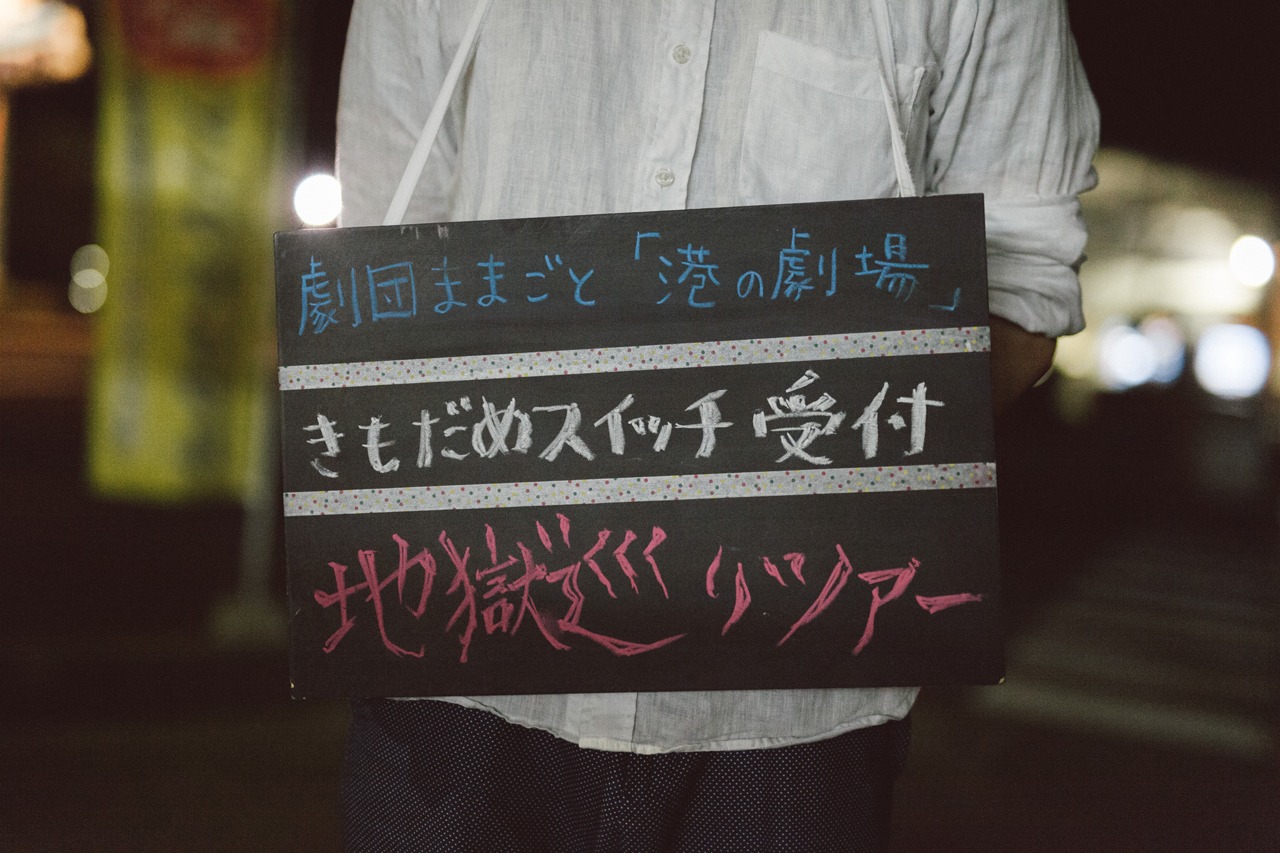 劇団ままごと「港の劇場」
きもだめスイッチ 受付
地獄巡りツアー